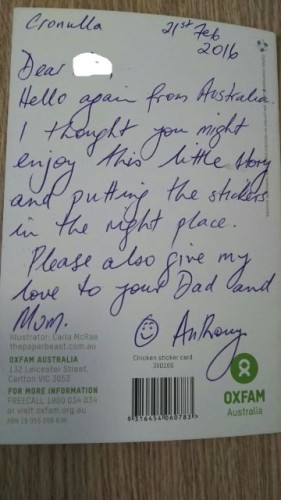 Cronulla 21st Feb
2016
Dear
Hello again from Australia.
I thought you might
enjoy this little story
and putting the stickers
in the right place.
Please also give my
love to your Dad and
Mum.
☺ Anthony
Illustrator: Carla McRae
thepaperbeast.com.au
OXFAM AUSTRALIA
132 Leicester Street,
Carlton VIC 3053
FOR MORE INFORMATION
FREECALL 1800 034 034
or visit oxfam.org.au
Chicken sticker card
OXFAM
Australia